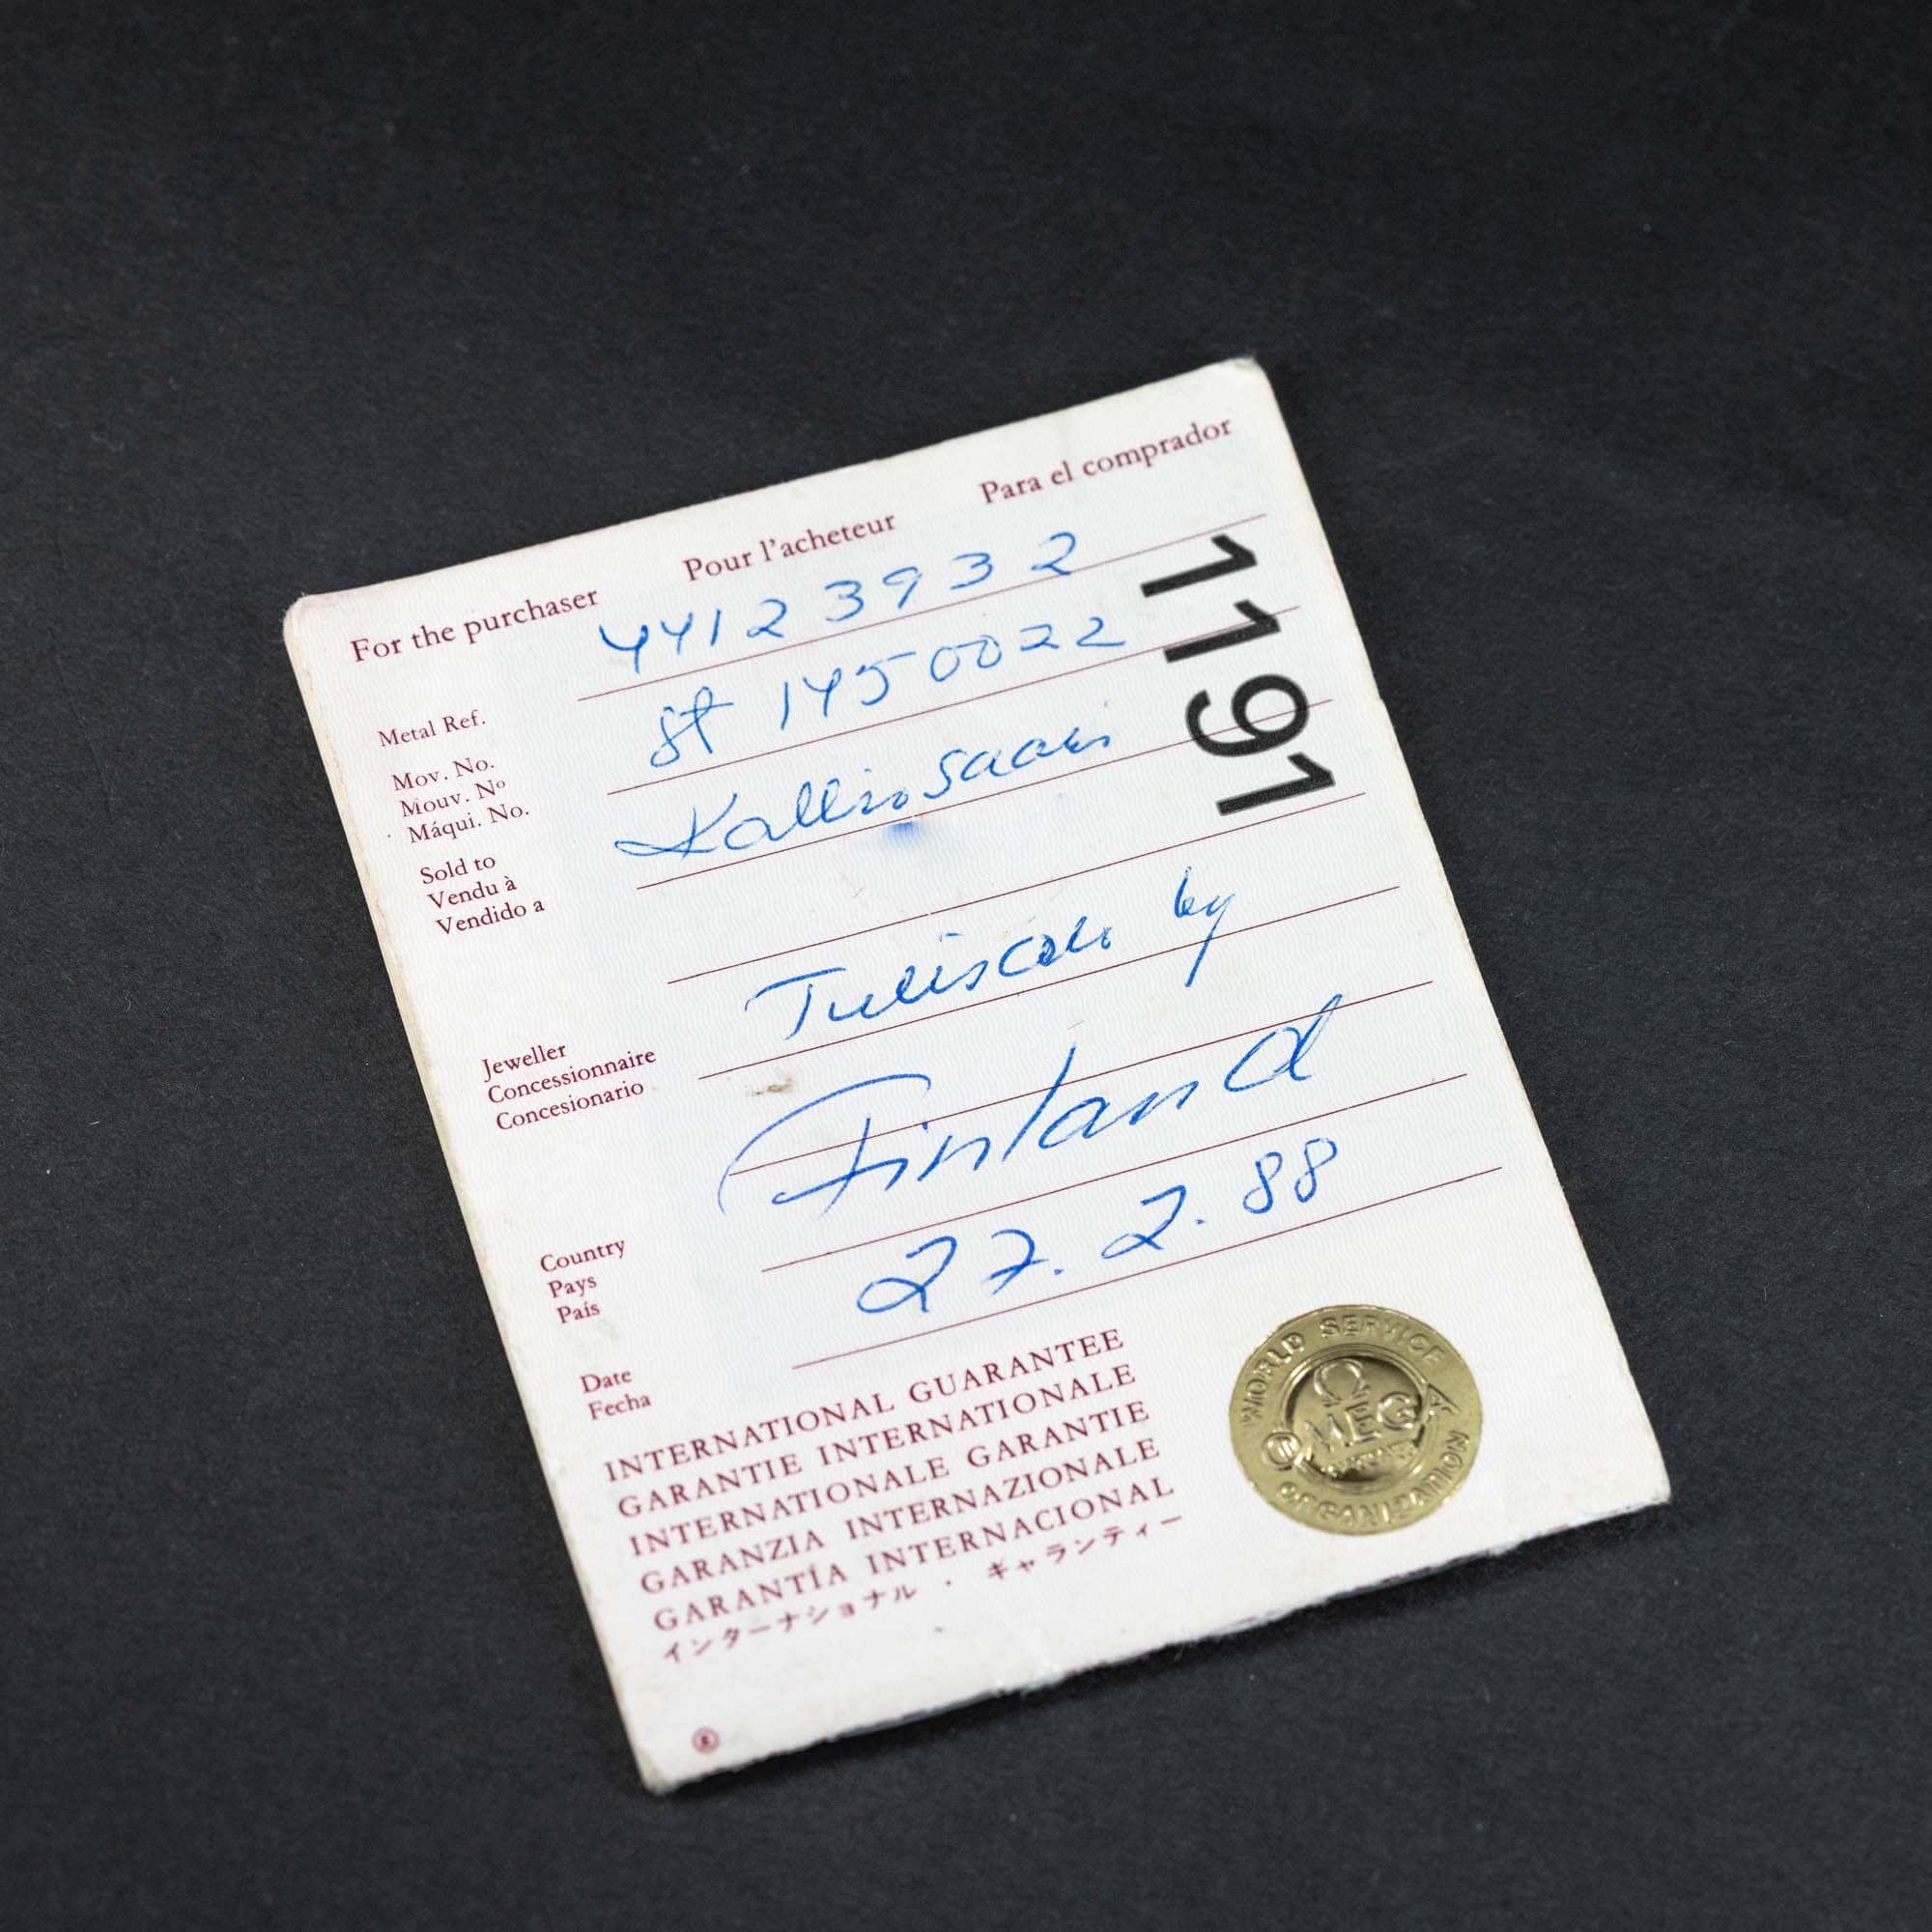 For the purchaser Pour l'acheteur Para el comprador
44123932
Metal Ref.
st 1450022
Mov. No.
Mouv. Nº
Máqui. No.
Kalliosaari
Sold to
Vendu à
Vendido a
1191
by
Jeweller
Concessionnaire
Concesionario
Finland
Country
Pays
País
27.2.88
Date
Fecha
INTERNATIONAL GUARANTEE
GARANTIE INTERNATIONALE
INTERNATIONALE GARANTIE
GARANZIA INTERNAZIONALE
GARANTÍA INTERNACIONAL
インターナショナル・ギャランティー
WORLD SERVICE
OMEGA
ORGANIZATION